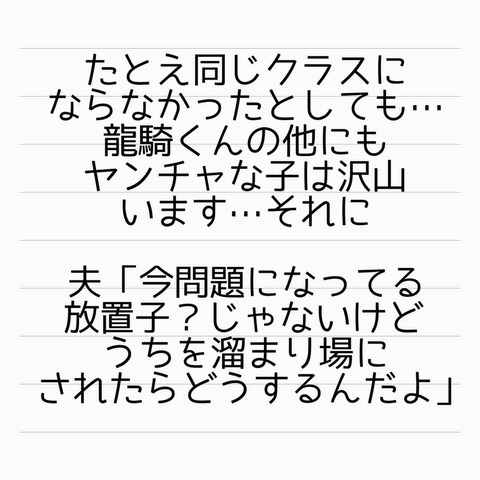 たとえ同じクラスに
ならなかったとしても…
龍騎くんの他にも
ヤンチャな子は沢山
います…それに
夫「今問題になってる
放置子？じゃないけど
うちを溜まり場に
されたらどうするんだよ」